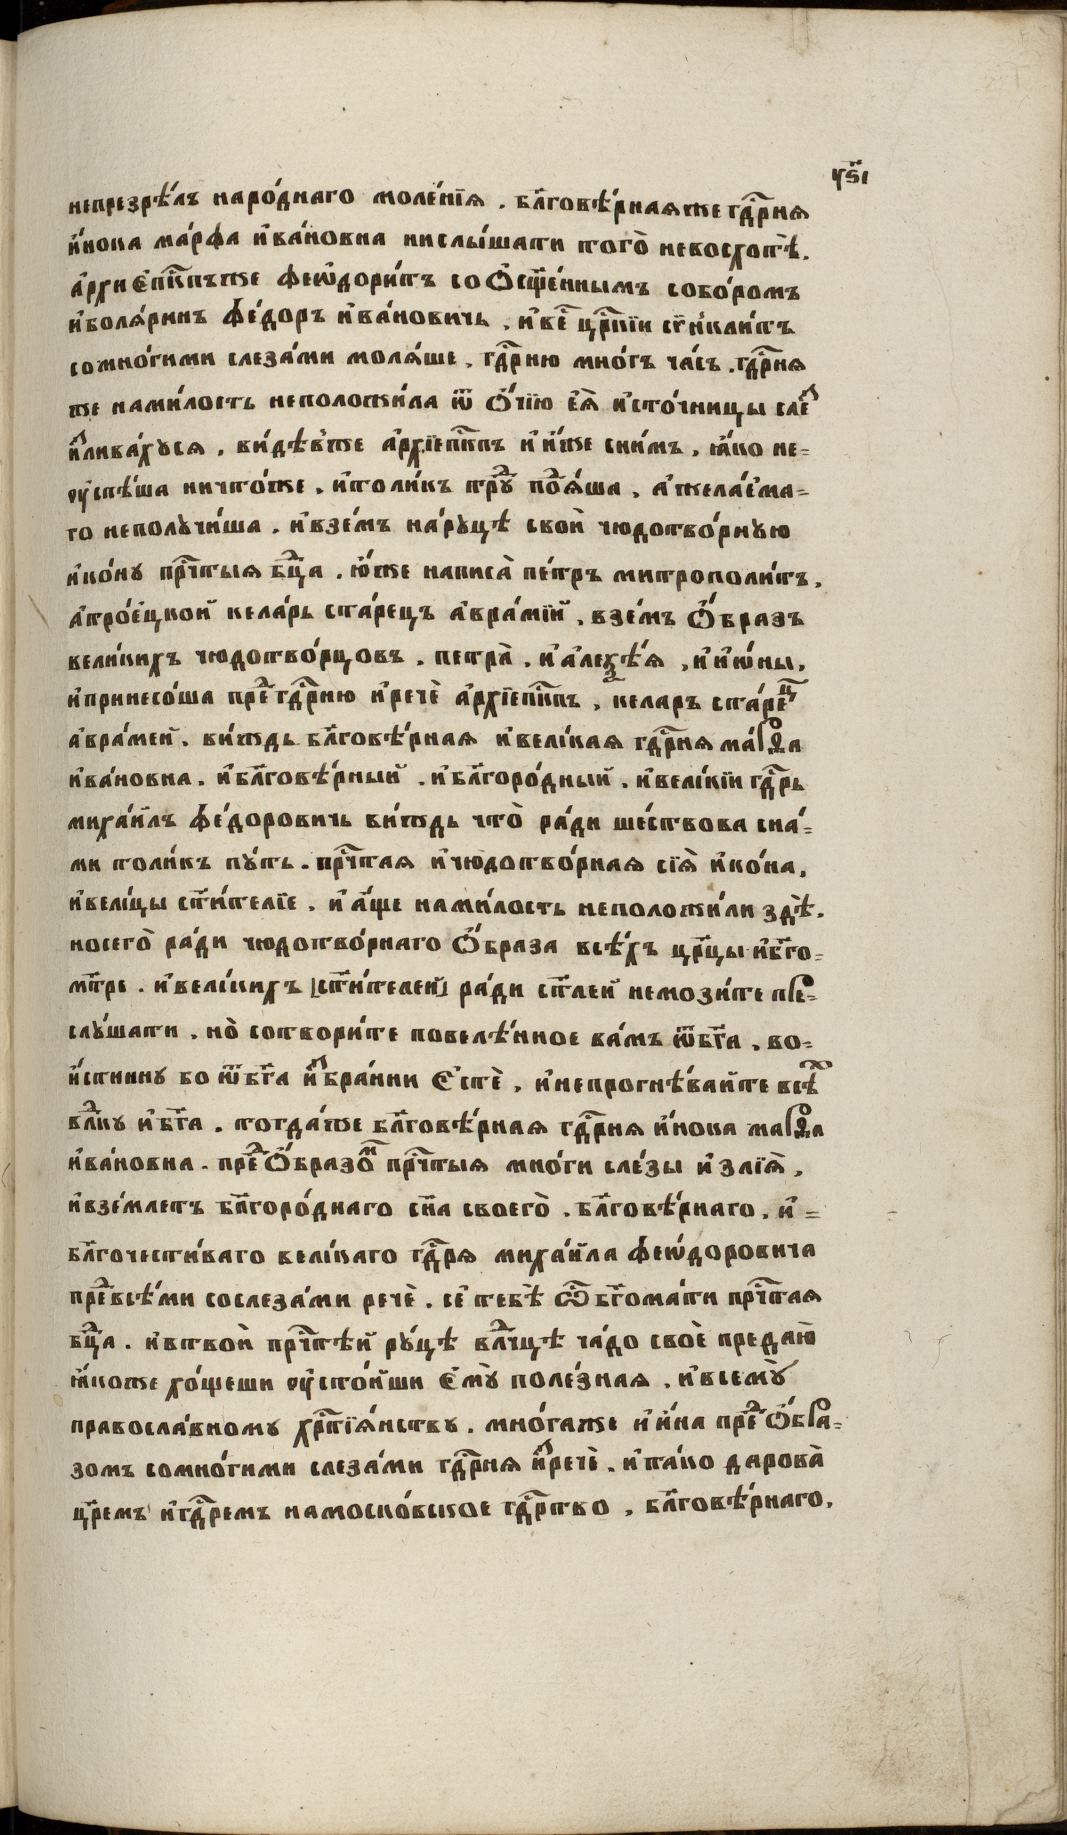 ч҃ѕі
непрезрѣ́лъ наро́днаго моле́нїѧ . бл҃говѣ́рнаѧже гд҃рнѧ
и҆́нока ма́рфа и҆ва́новна нислы́шати того̀ невосхотѣ̀.
а҆рхиеп҃кпъже феѡ҆дори́тъ со ѡ҆сщ҃е́ннымъ собо́ромъ
и҆болѧ́ринъ фе́доръ и҆ва́новичь , и҆ве҃ цр҃кїи сѷ́нклитъ
сомно́гими слеза́ми молѧ́ше , гд҃рню мно́гъ ча́съ . гд҃рнѧ
же нами́лость неположи́ла ѿ ѻ҆́чїю еѧ̀ и҆сто́чницы сле́ꙁ
и҆ꙁлива́хусѧ , ви́дѣвже а҆рхїеп҃кпъ и҆ и҆́же сни́мъ , ꙗ҆́ко не=
ꙋ҆спѣ́ша ничто́же , и҆толи́къ трꙋ҃ поѧ́ша , а҆жела́ема=
го неполꙋчи́ша . и҆взе́мъ на́рꙋцѣ свои̑ чюдотво́рнꙋю
и҆ко́нꙋ пр҃чтыѧ бц҃а . ю҆́же написа̀ пе́тръ митрополи́тъ,
а҆трое́цкой келарь ста́рецъ а҆вра́мїй , взе́мъ ѻ҆́бразъ
вели́кихъ чюдотво́рцовъ . петра̀ , и҆ а҆леѯѣ́ѧ , и҆ и҆ѡ́ны,
и҆принесо́ша пре҃ гд҃рню и҆рече̑ а҆рхїеп҃кпъ , келаръ ста́ре҃ц
а҆вра́мей . ви́ждь бл҃говѣ́рнаѧ и҆вели́каѧ гд҃рнѧ ма́рѳа
и҆ва́новна . и҆бл҃говѣ́рный . и҆бл҃горо́дный . и҆вели́кїи гд҃рь
миха́илъ фе́доровичь виждь что̀ ра́ди ше́ствова сна́=
ми толи́къ пꙋ́ть . пр҃чтаѧ и҆чюдотво́рнаѧ сїѧ̀ и҆ко́на,
и҆вели́цы ст҃и́телїе . и҆ а҆́ще нами́лость неположи́ли здѣ̀.
носего̀ ра́ди чюдотво́рнаго ѻ҆́браза всѣ́хъ цр҃цы и҆бг҃о=
мт҃ре . и҆вели́кихъ [ст҃и́телей] ра́ди ст҃лей немози́те пре=
слꙋ́шати , но̀ сотвори́те повелѣ́нное ва́мъ ѿбг҃а , во=
и҆́стиннꙋ бо ѿбг҃а и҆ꙁбра́нни е҆стѐ , и҆непрогнѣ́вайте всѣ҃х
вл҃кꙋ и҆бг҃а . тогда́же бл҃говѣ́рнаѧ гд҃рнѧ и҆́нока марѳа
и҆ва́новна . пре҃ѻ҆́бразо҃м пр҃чтыѧ мно́ги сле́зы и҆злїѧ̀,
и҆взе́млетъ бл҃горо́днаго сн҃а своего̀ . бл҃говѣ́рнаго , и҆=
бл҃гочести́ваго вели́каго гд҃рѧ миха́ила феѡ҆́доровича
пре҃всѣ́ми сослеза́ми рече̑ . се҆ тебѣ̀ ѽ бг҃ома́ти пр҃чтаѧ
бц҃а . и҆втвои̑ пр҃чтѣй рꙋ́цѣ вл҃чцѣ ча́до свое̑ предаю̀
ꙗ҆́коже хо́щеши ꙋ҆стро́йши е҆мꙋ̀ поле́зная , и҆всемꙋ̀
правосла́вномꙋ хр҃тїѧ́нствꙋ . мно́гаже и҆ и҆́на пре҃ѻ҆́бра=
зомъ сомно́гими слеза́ми гд҃рнѧ и҆ꙁрече̑ , и҆та́ко дарова̀
цр҃емъ и҆гд҃ремъ намоско́вское гд҃рство , бл҃говѣ́рнаго,